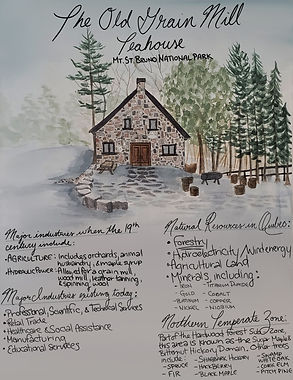 The Old Grain Mill
Teahouse
Mt. St. Bruno National Park
Major industries when the 19th
century include:
-Agriculture: Includes orchards, animal
husbandry, & maple syrup
-Hydraulic Power: Allowed for a grain mill,
wood mill, leather tanning
& spinning wool
Major Industries existing today:
• Professional, Scientific, & Technical Services
• Retail Trade
• Healthcare & Social Assistance
• Manufacturing
• Educational Services
Natural Resources in Quebec:
• Forestry
• Hydroelectricity/Wind energy
• Agricultural Land
• Minerals, including:
- Iron - Titanium Dioxide
- Gold - Cobalt
- Platinum - Copper
- Nickel - Niobium
Northern Temperate Zone:
Part of the Hardwood Forest Sub Zone,
this area is known as the Sugar Maple &
Bitternut Hickory Domain. Other trees
include: - Shagbark Hickory - Swamp White Oak
- Spruce - Hackberry - Cork Elm
- Fir - Black Maple - Pitch Pine